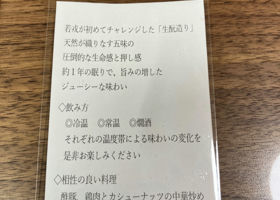 若戎が初めてチャレンジした「生酛造り」
天然が織りなす五味の
圧倒的な生命感と押し感
約1年の眠りで、旨みの増した
ジューシーな味わい
◇飲み方
◎冷温 ◎常温 ◎燗酒
それぞれの温度帯による味わいの変化を
是非お楽しみください
◇相性の良い料理
酢豚、鶏肉とカシューナッツの中華炒め